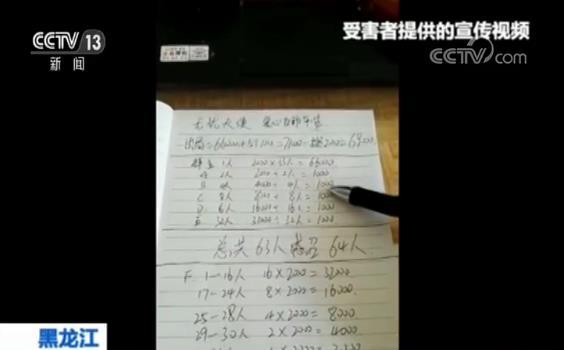 CCTV 13
新闻
受害者提供的宣传视频
CCTV.com
无忧天使 爱心互助平台
群主 1人 2000×33人=66000
A 2人 2000÷2人=1000
B 4人 4000÷4人=1000
C 8人 8000÷8人=1000
D 16人 16000÷16人=1000
E 32人 32000÷32人=1000
总共63人 64人
F 1—16人 16×2000=32000
17—24人 8×2000=16000
25—28人 4×2000=8000
29—30人 2×2000=4000
黑龙江